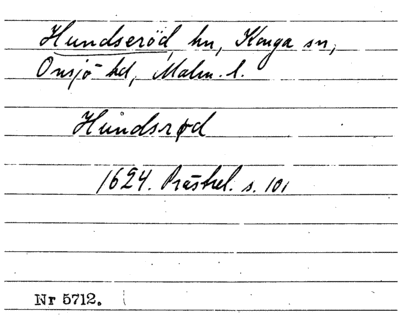 Hundseröd, hn, Konga sn,
Onsjö hd, Malm. l.
Hundsrød
1624. Prästrel. s. 101
Nr 5712.